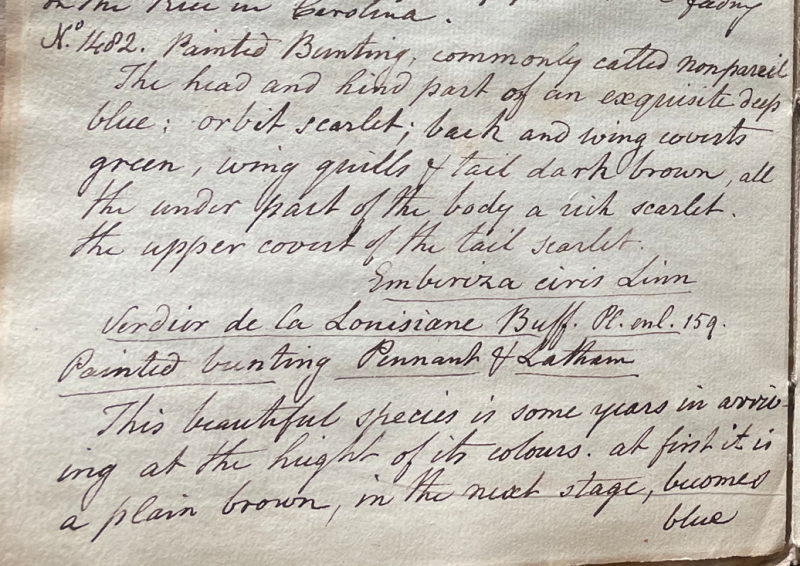 on the Rice in Carolina.
No. 1482. Painted Bunting, commonly called nonpareil
The head and hind part of an exquisite deep
blue; orbit scarlet; back and wing coverts
green, wing quills & tail dark brown, all
the under part of the body a rich scarlet.
the upper covert of the tail scarlet.
Emberiza ciris Linn
Verdier de la Louisiane Buff. Pl. enl. 159.
Painted bunting Pennant & Latham
This beautiful species is some years in arriv-
ing at the height of its colours. at first it is
a plain brown, in the next stage, becomes
blue